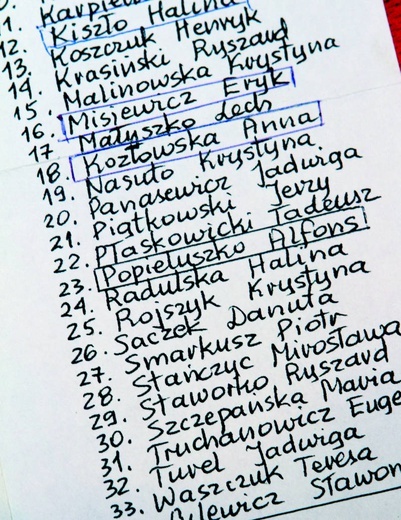 1. Karpie
12. Kiszło Halina
13. Koszczuk Henryk
14. Krasiński Ryszard
15. Malinowska Krystyna
16. Misiewicz Eryk
17 Małyszko Lech
18. Kozłowska Anna
19. Nasuto Krystyna
20. Panasewicz Jadwiga
21. Piątkowski Jerzy
22. Płaskowicki Tadeusz
23. Popiełuszko Alfons
24. Radulska Halina
25. Rojszyk Krystyna
26. Saczek Danuta
27. Smarkusz Piotr
28. Stańczyc Mirosława
29. Staworko Ryszard
30. Szczepańska Maria
31. Truchanowicz Euge
32. Turel Jadwiga
33. Waszczuk Teresa
ilewicz Sławom